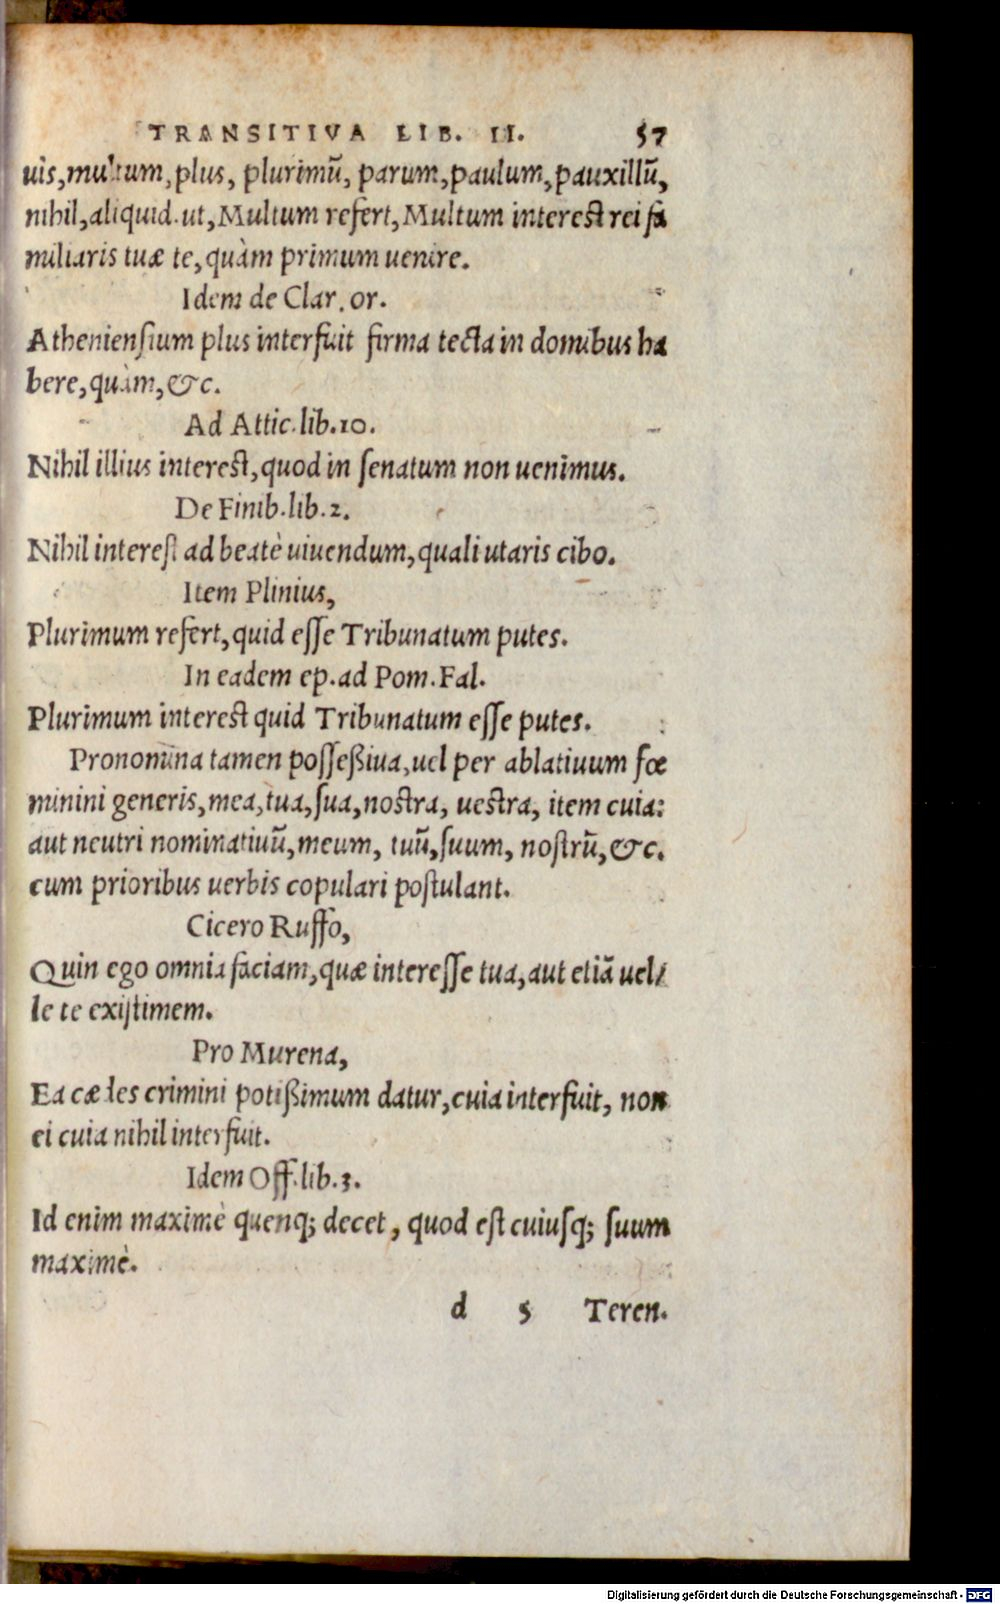 TRANSITIVA LIB. II. 57
uis, multum, plus, plurimũ, parum, paulum, pauxillũ,
nihil, aliquid. ut, Multum refert, Multum interest rei fa
miliaris tuæ te, quàm primum uenire.
Idem de Clar. or.
Atheniensium plus interfuit firma tecta in domibus ha
bere, quàm, &c.
Ad Attic. lib. 10.
Nihil illius interest, quod in senatum non uenimus.
De Finib. lib. 2.
Nihil interest ad beatè uiuendum, quali utaris cibo.
Item Plinius,
Plurimum refert, quid esse Tribunatum putes.
In eadem ep. ad Pom. Fal.
Plurimum interest quid Tribunatum esse putes.
Pronomina tamen posseßiua, uel per ablatiuum fœ
minini generis, mea, tua, sua, nostra, uestra, item cuia:
aut neutri nominatiuũ, meum, tuũ, suum, nostrũ, &c.
cum prioribus uerbis copulari postulant.
Cicero Ruffo,
Quin ego omnia faciam, quæ interesse tua, aut etiã uel/
le te existimem.
Pro Murena,
Ea cædes crimini potißimum datur, cuia interfuit, non
ei cuia nihil interfuit.
Idem Off. lib. 3.
Id enim maximè quenq; decet, quod est cuiusq; suum
maximè.
d 5 Teren.
Digitalisierung gefördert durch die Deutsche Forschungsgemeinschaft - DFG